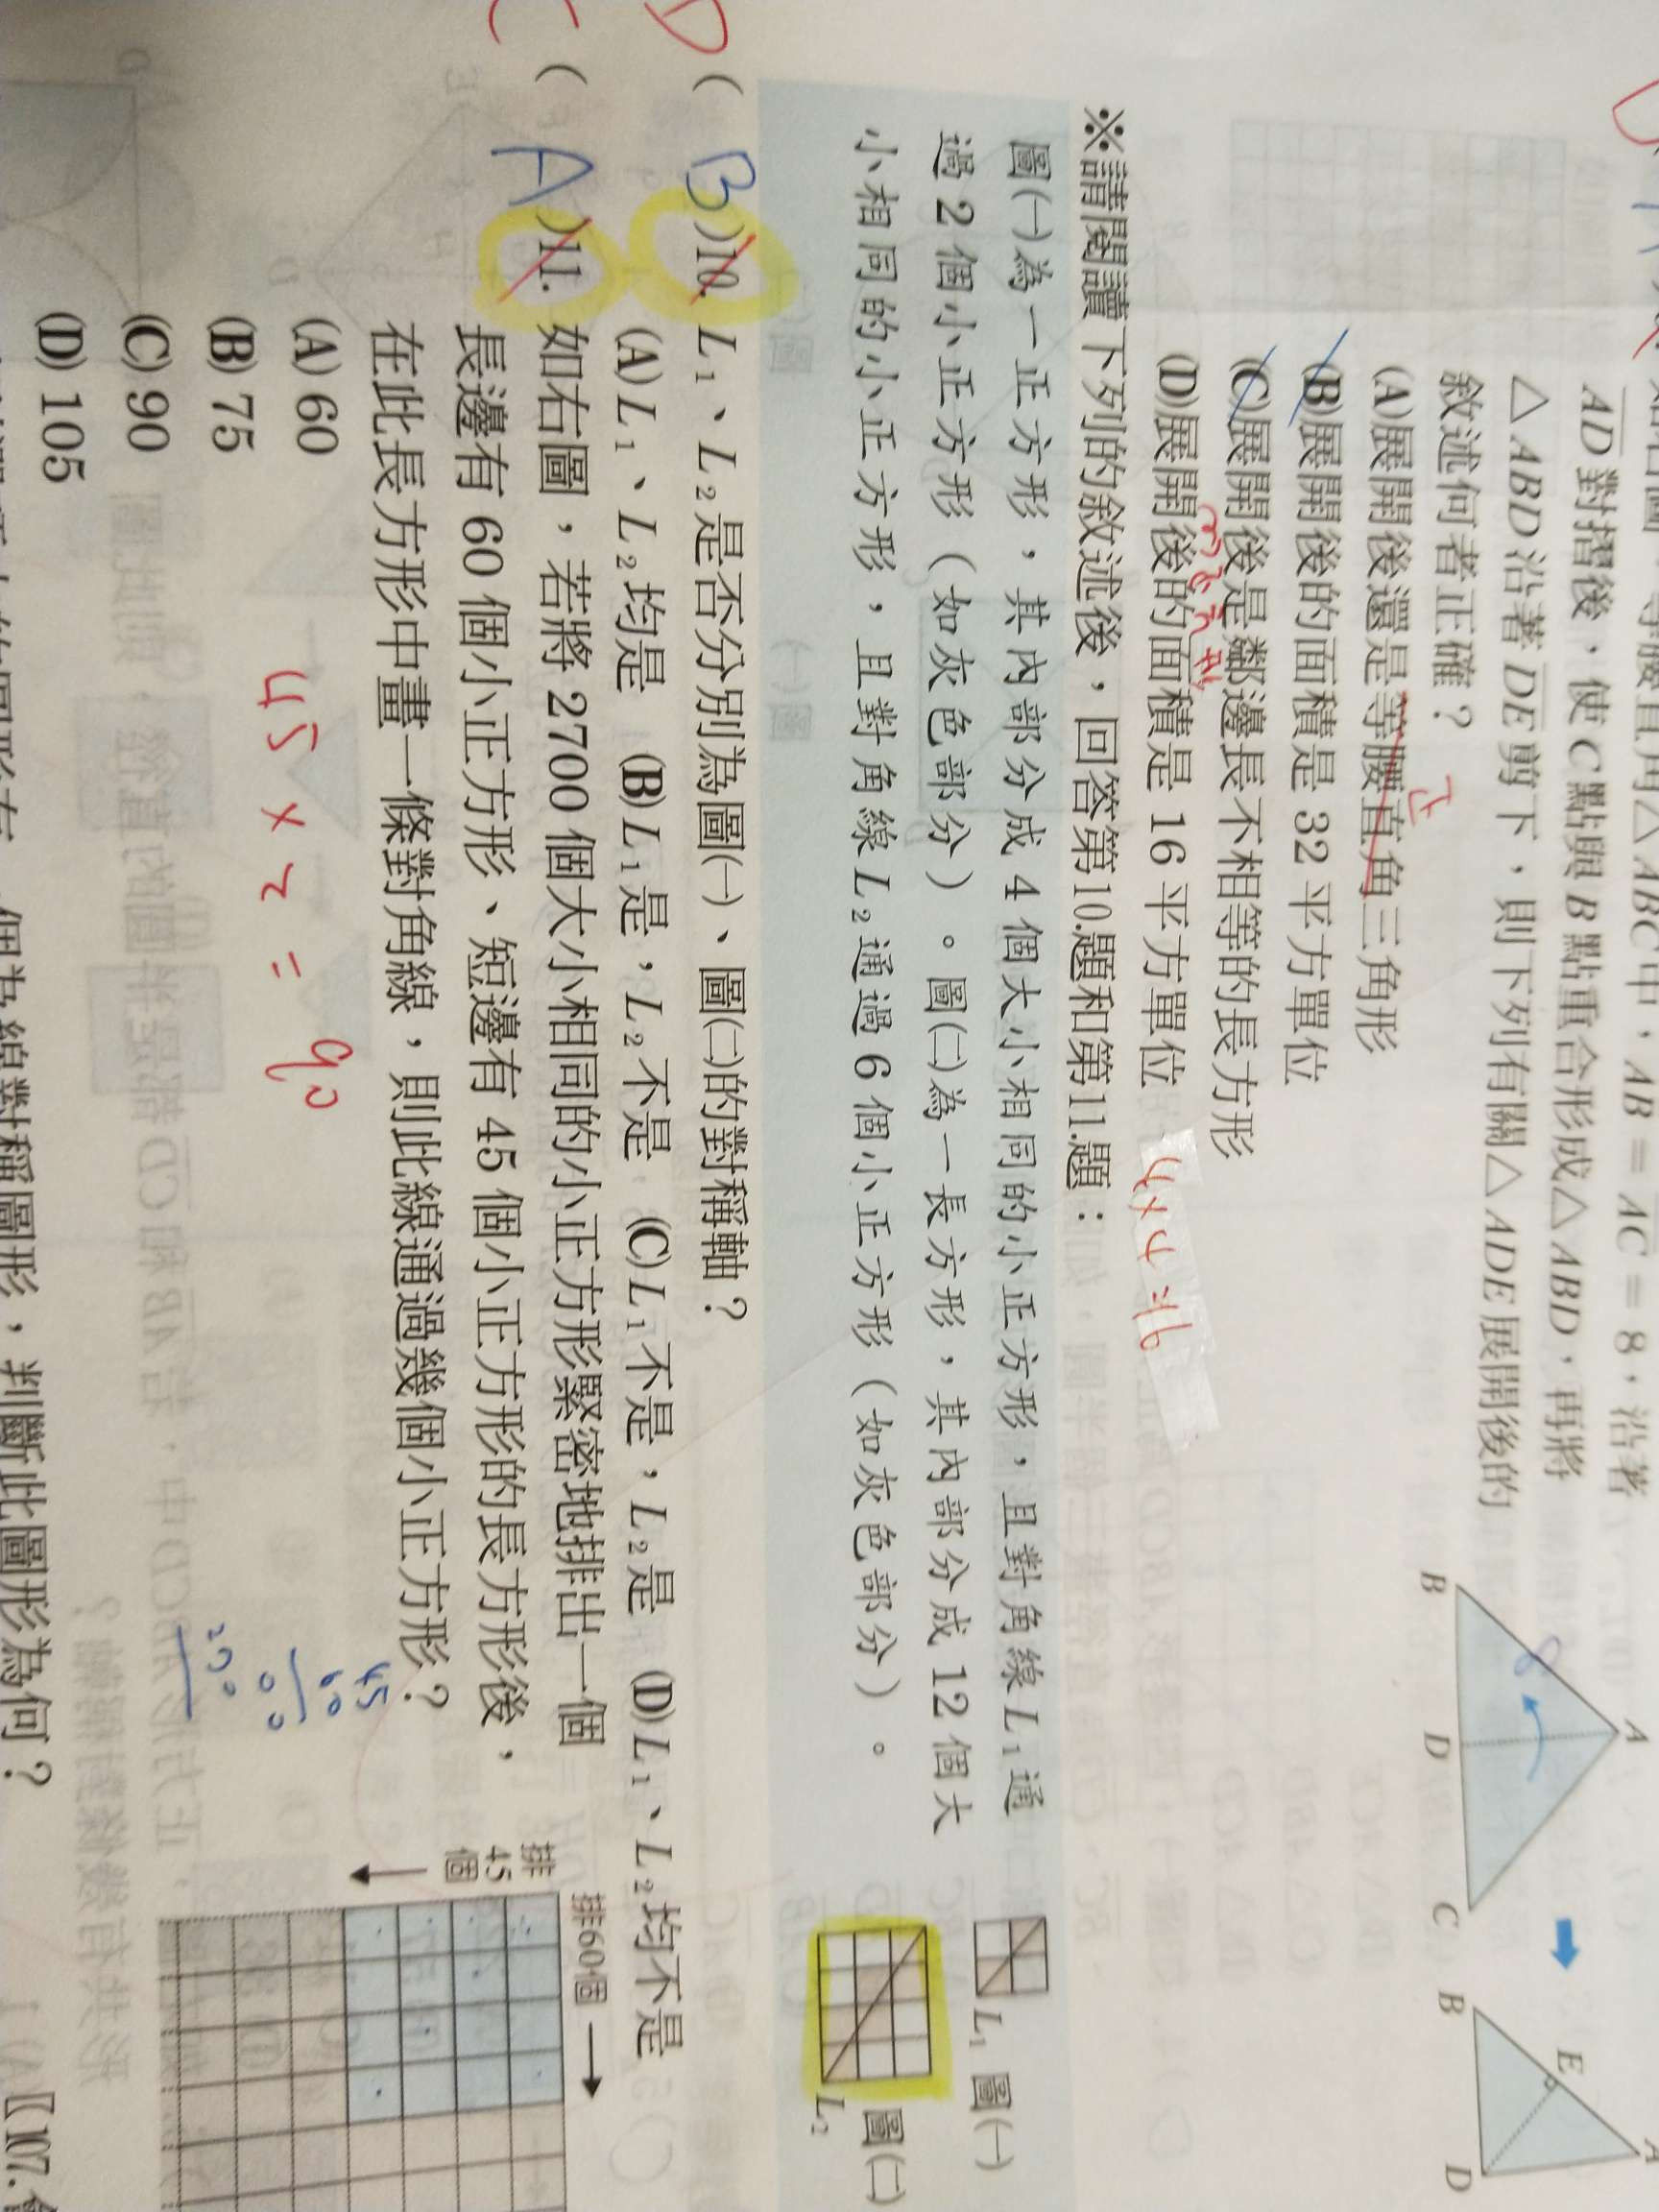 AD 對摺後，使 C 點與 B 點重合形成△ABD，再將
△ABD 沿著 DE 剪下，則下列有關△ADE 展開後的
敘述何者正確？
(A)展開後還是等腰直角三角形
正
(B)展開後的面積是 32 平方單位
(C)展開後是鄰邊長不相等的長方形
(D)展開後的面積是 16 平方單位
4×4=16
B
A
D
C
B
E
A
D
※請閱讀下列的敘述後，回答第10.題和第11.題：
圖㈠為一正方形，其內部分成 4 個大小相同的小正方形，且對角線 L1 通
過 2 個小正方形（如灰色部分）。圖㈡為一長方形，其內部分成 12 個大
小相同的小正方形，且對角線 L2 通過 6 個小正方形（如灰色部分）。
L1 圖㈠
L2 圖㈡
D ( B )10. L1、L2 是否分別為圖㈠、圖㈡的對稱軸？
(A)L1、L2 均是 (B)L1 是，L2 不是 (C)L1 不是，L2 是 (D)L1、L2 均不是
C ( A )11. 如右圖，若將 2700 個大小相同的小正方形緊密地排出一個
長邊有 60 個小正方形、短邊有 45 個小正方形的長方形後，
在此長方形中畫一條對角線，則此線通過幾個小正方形？
(A) 60
(B) 75
(C) 90
(D) 105
45×2=90
45
60
排60個
排
45
個
個為線對稱圖形，判斷此圖形為何？